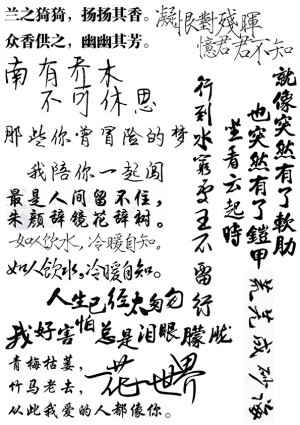 兰之猗猗，扬扬其香。
众香供之，幽幽其芳。
凝恨對殘暉
憶君君不知
南有乔木
不可休思
那些你曾冒险的梦
我陪你一起闯
最是人间留不住，
朱颜辞镜花辞树。
如人饮水，冷暖自知。
如人饮水。冷暖自知。
行到水窮處
坐看云起時
王不留行
就像突然有了軟肋
也突然有了鎧甲
人生已经太匆匆
我好害怕总是泪眼朦胧
青梅枯萎，
竹马老去，
从此我爱的人都像你。
一花一世界